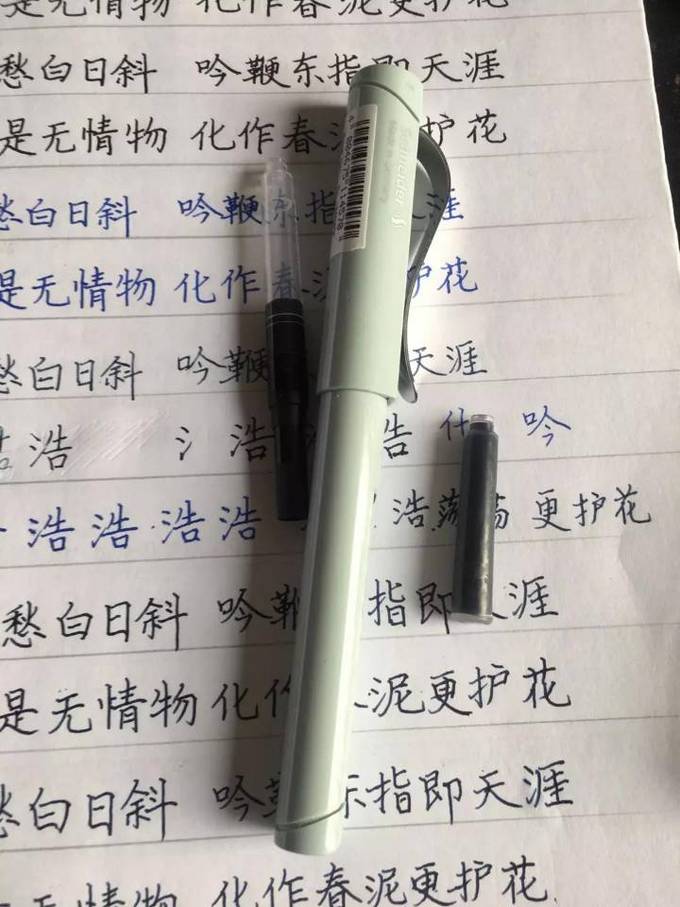 是无情物 化作春泥更护花
愁白日斜 吟鞭东指即天涯
是无情物 化作春 护花
愁白日斜 吟鞭东指 涯
是无情物 化作春 护花
愁白日斜 吟鞭 天涯
浩 氵 浩 告 吟
浩 浩 浩 浩 浩荡 更护花
愁白日斜 吟鞭 指即 涯
是无情物 化作 泥更护花
愁白日斜 吟 东指即天涯
无情物 化作春泥更护花
Schneider